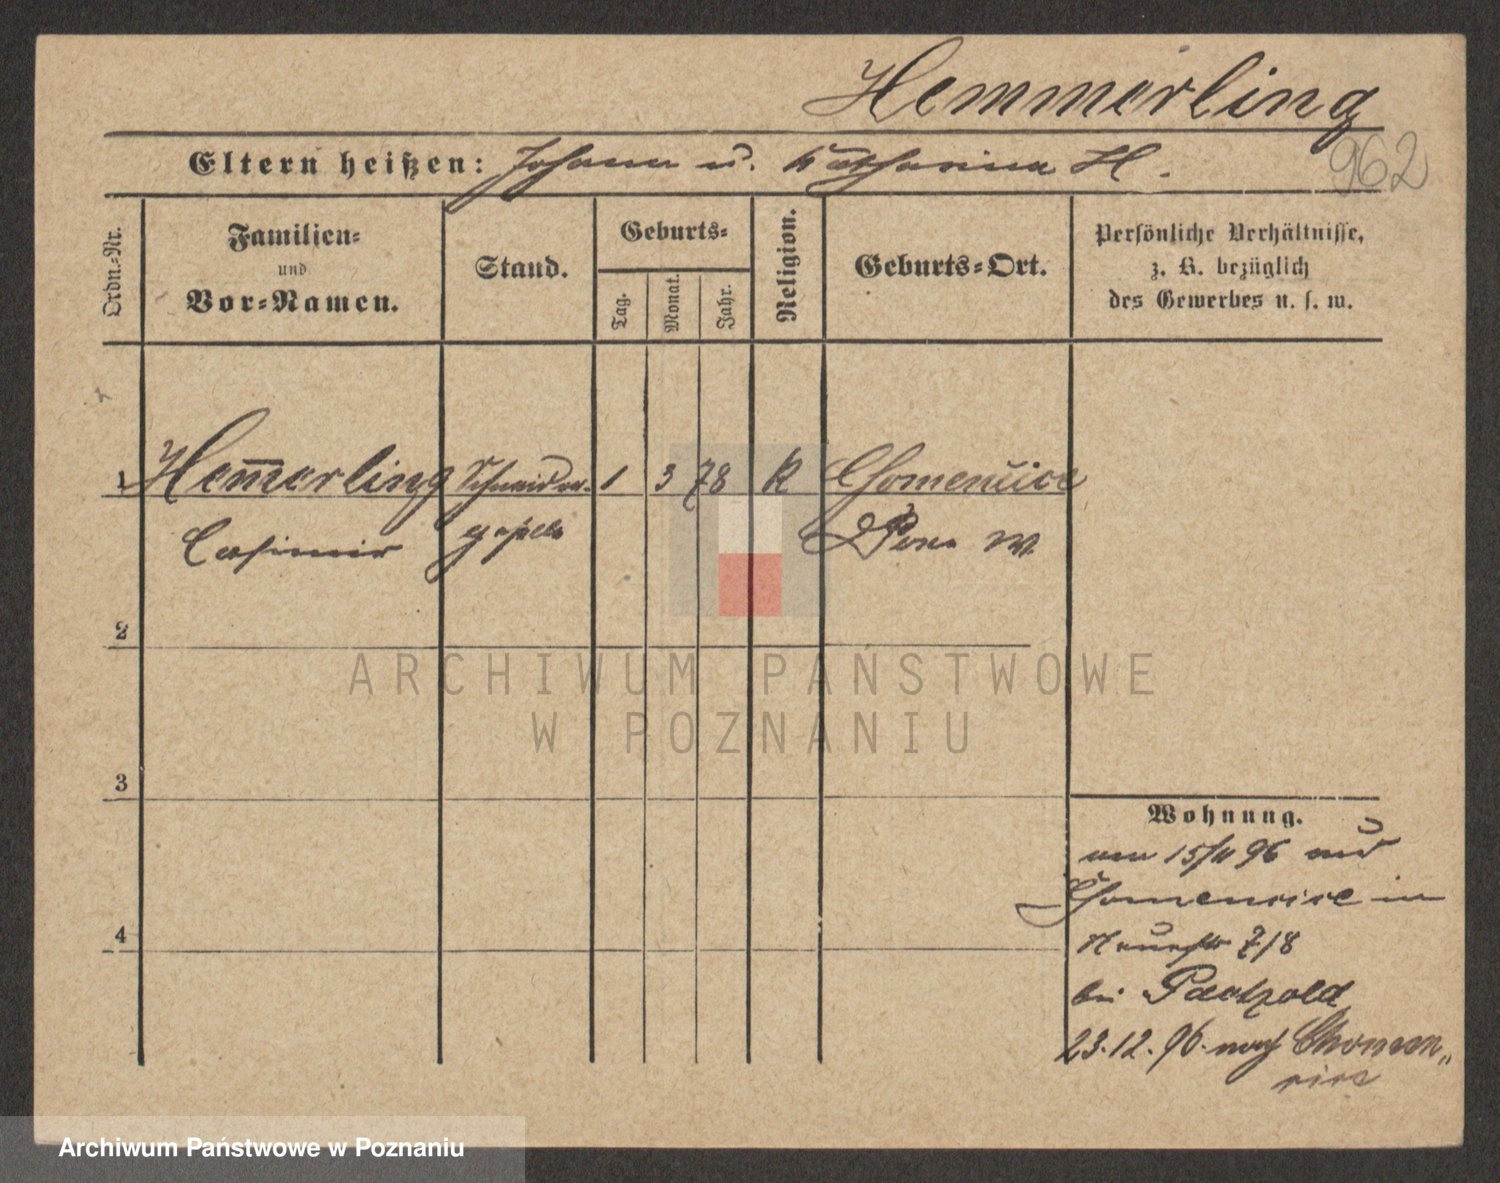 Hemmerling
Eltern heißen: Johann u. Katharina H.
962
Ordn.-Nr.
Familien-
und
Vor-Namen.
Stand.
Geburts-
Tag.
Monat.
Jahr.
Religion.
Geburts-Ort.
Persönliche Verhältnisse,
z. B. bezüglich
des Gewerbes u. s. w.
1 Hem̄erling Schneider- 1 3 78 K Chomencice
Casimir geselle Posen W
2
3
4
Wohnung.
am 15/11 96 aus
Chomencice in
Neuestr 7/8
bei Paetzold
23.12.96. nach Chomen„
cice
ARCHIWUM PAŃSTWOWE
W POZNANIU
Archiwum Państwowe w Poznaniu